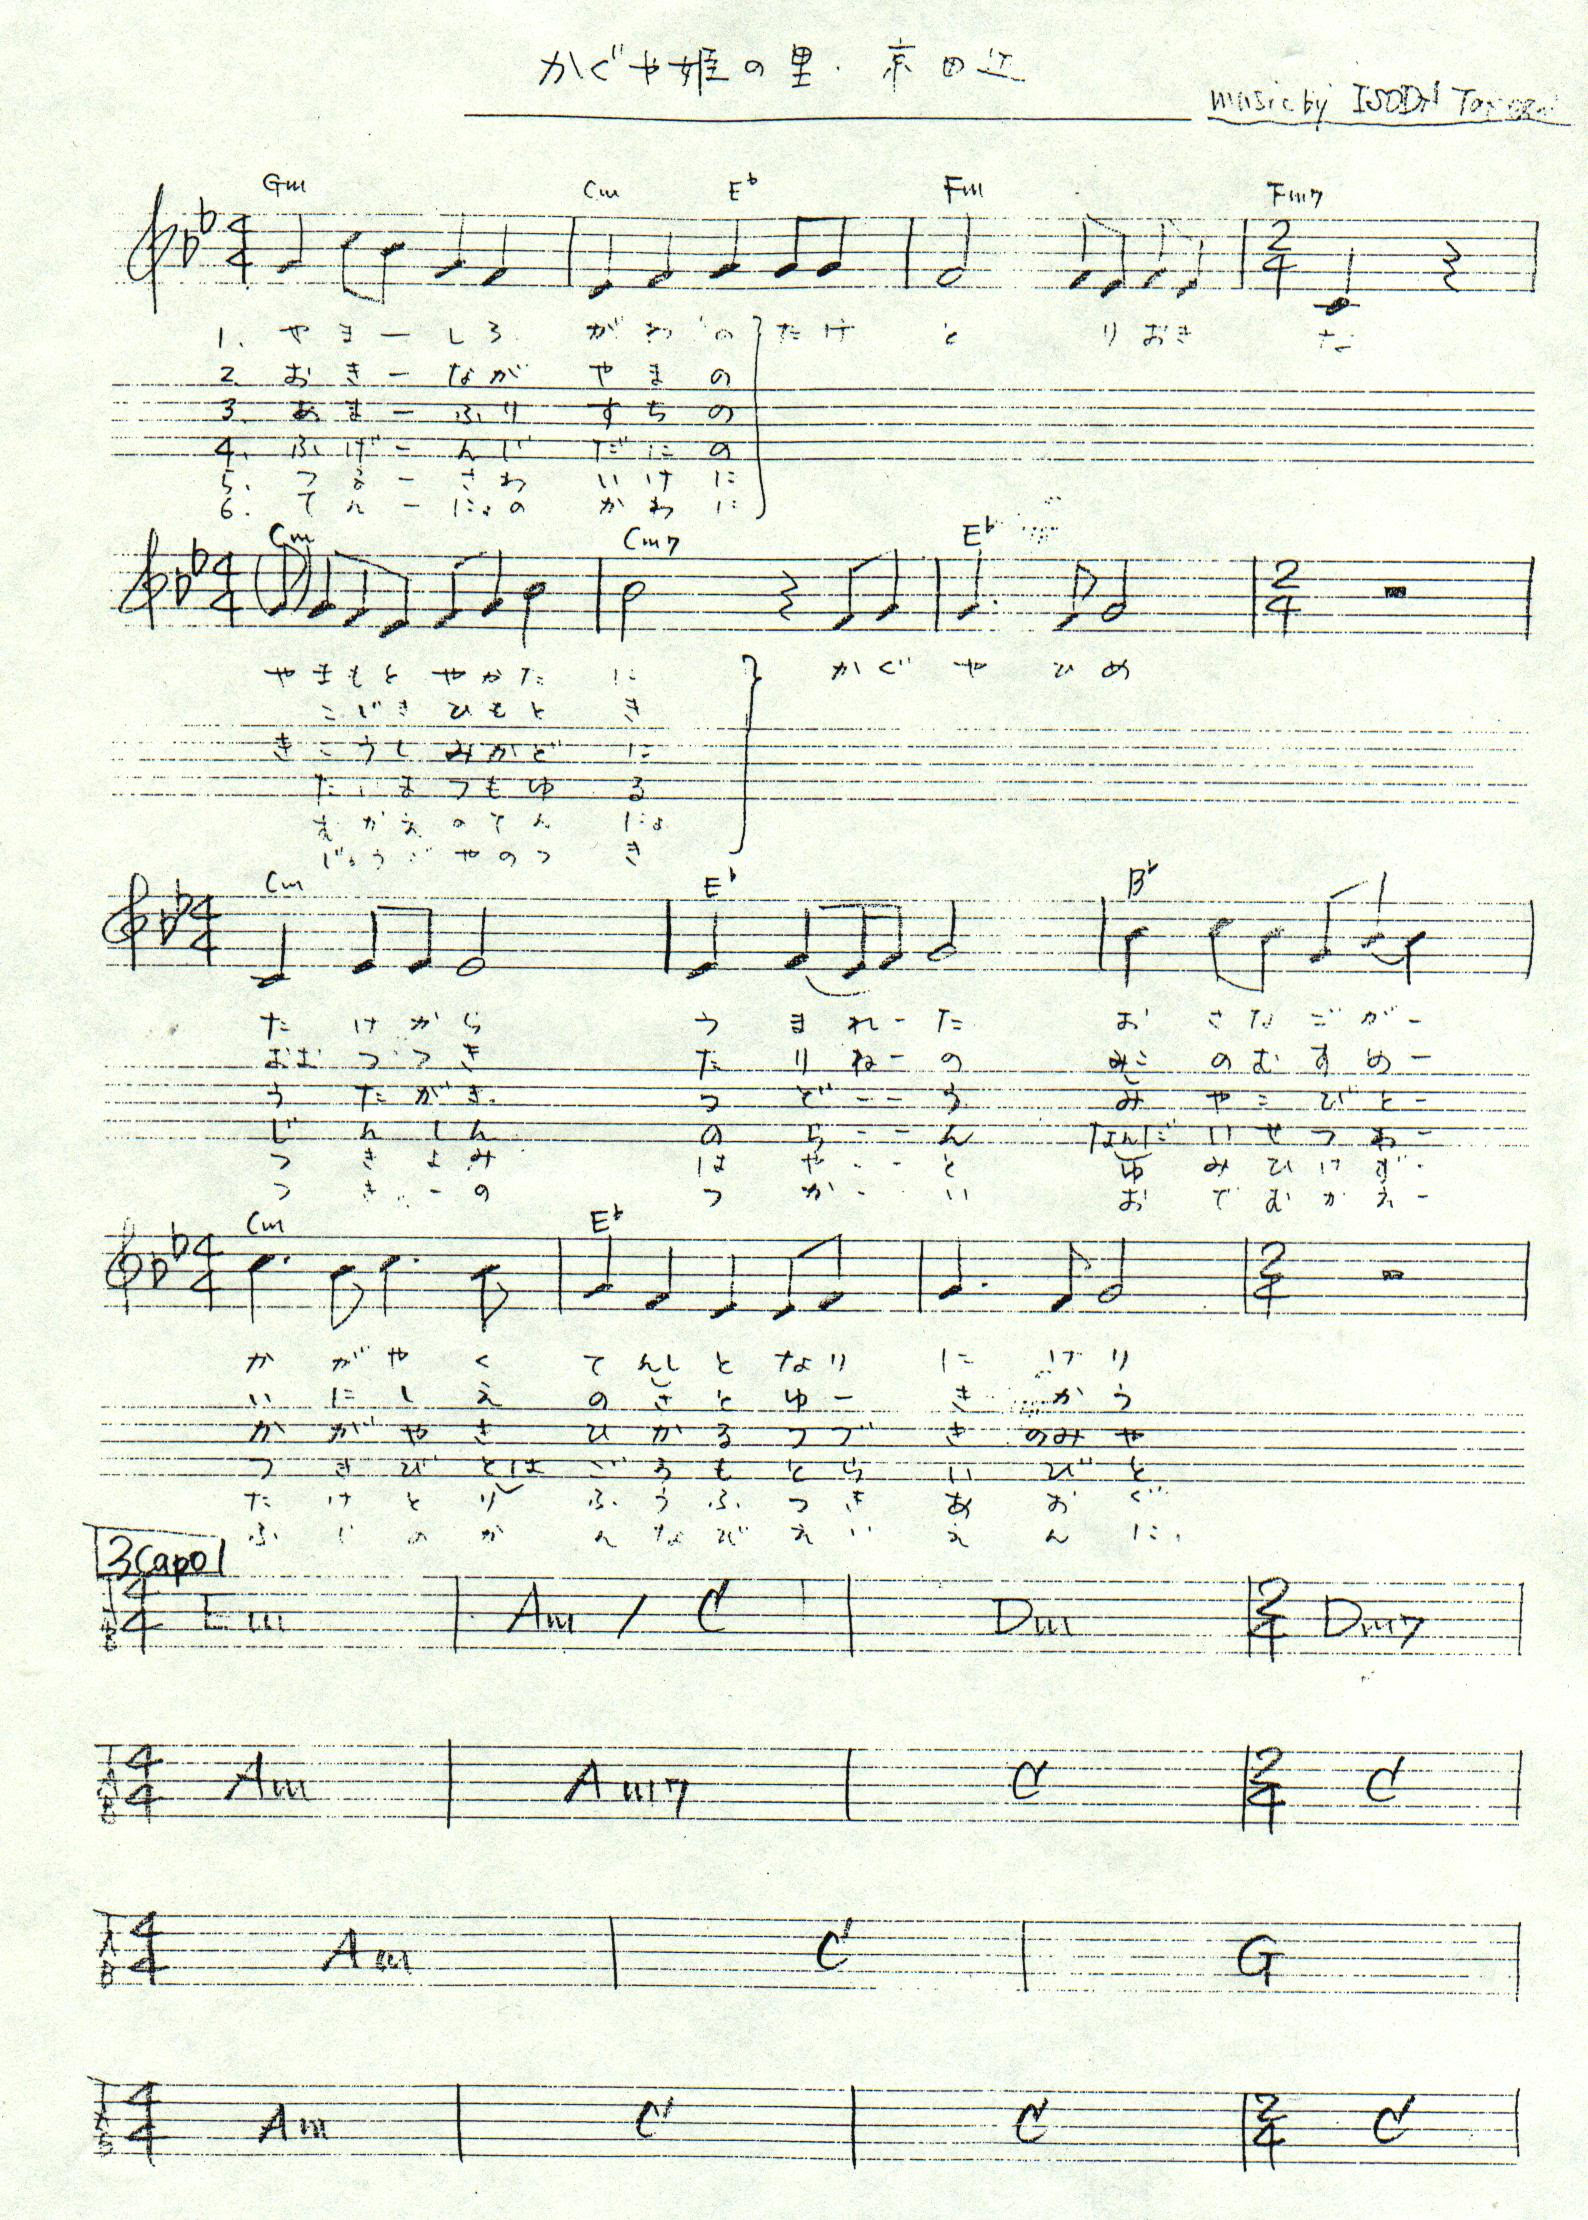 かぐや姫の里・京田辺
music by ISODA
Gm Cm E♭ Fm Fm7
4/4 2/4
1. やまーしろ がわの たけとりおきな
2. おきーなが やまの
3. あまーふり すちの
4. ふげーんじ だにの
5. つ ーさわ いけに
6. てんーにょの かわに
Cm Cm7 E♭
4/4 2/4
やまもとやかたに かぐやひめ
こじきひもとき
きこうしみかどに
たいまつもゆる
むかえのてんにょ
じゅうごやのつき
Cm E♭ B♭
4/4
たけから うまれーた おさなごがー
おおつつき たりねーの みこのむすめー
うたがき つどーーう みやこびとー
じんしん のらーーん なんだいせつわー
つきよみ はやーーと ゆみひけずー
つきーの つかーい おでむかえー
Cm E♭
4/4 2/4
かがやく てんしとなりにけり
いにしえ のさとゆーきかう
かがやき ひかるつづきのみや
つきびとは ごろもとらいびと
たけとり ふうふつきあおぐ
ふじのか んなびえいえんに
3capo
TAB 4/4 Em Am / C Dm 2/4 Dm7
TAB 4/4 Am Am7 C 2/4 C
TAB 4/4 Am C G
TAB 4/4 Am C C 2/4 C